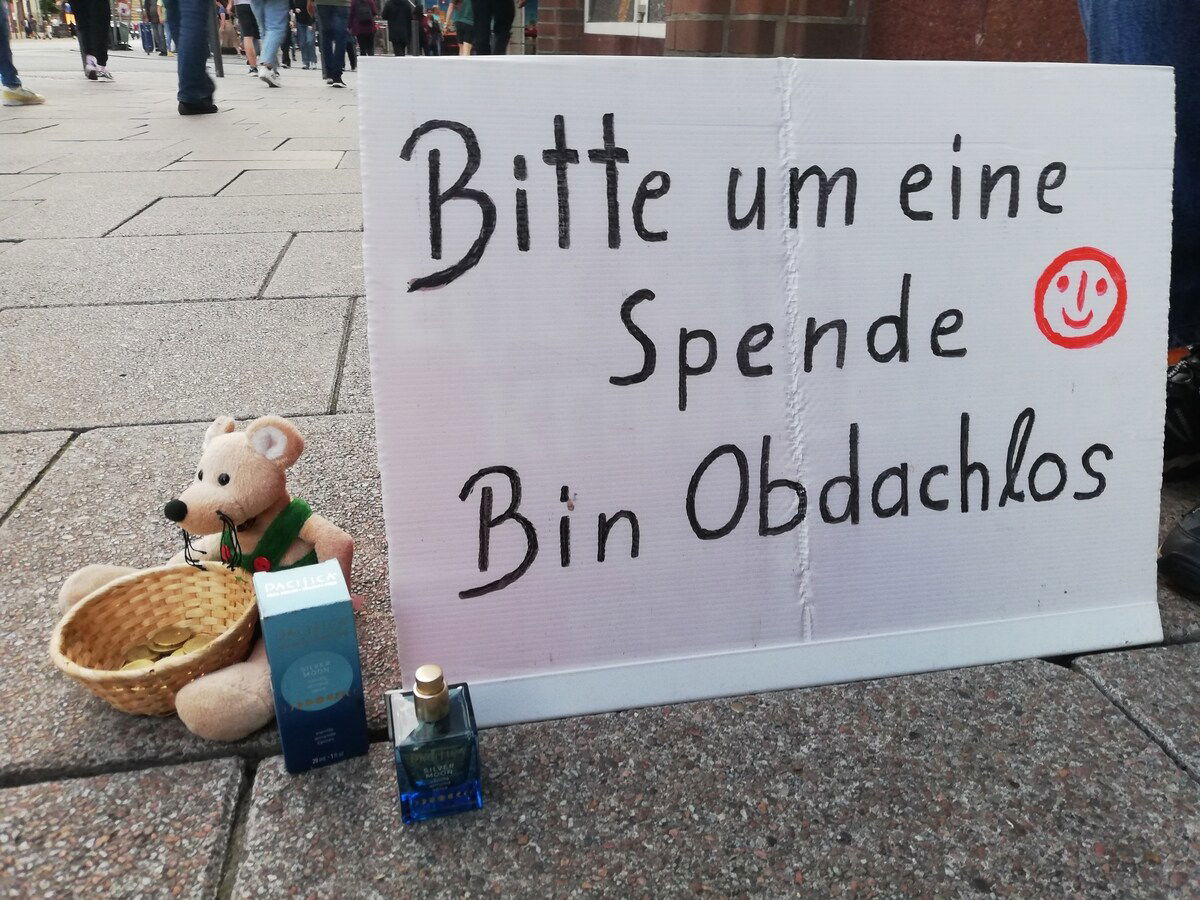 Bitte um eine
Spende
Bin Obdachlos
PACIFICA
SILVER
MOON
SILVER
MOON